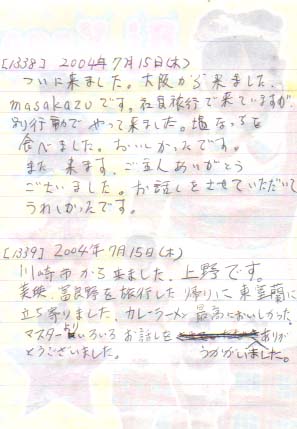 [1338] 2004年7月15日(木)
ついに来ました。大阪から来ました。
masakazuです。社員旅行で来ていますが、
別行動でやって来ました。塩なっとを
食べました。おいしかったです。
また来ます。ご主人ありがとう
ございました。お話しをさせていただいて
うれしかったです。
[1339] 2004年7月15日(木)
川崎市から来ました、上野です。
美瑛、富良野を旅行した帰りに東室蘭に
立ち寄りました。カレーラーメン最高においしかった。
マスターよりいろいろお話しを うかがいました。ありが
とうございました。